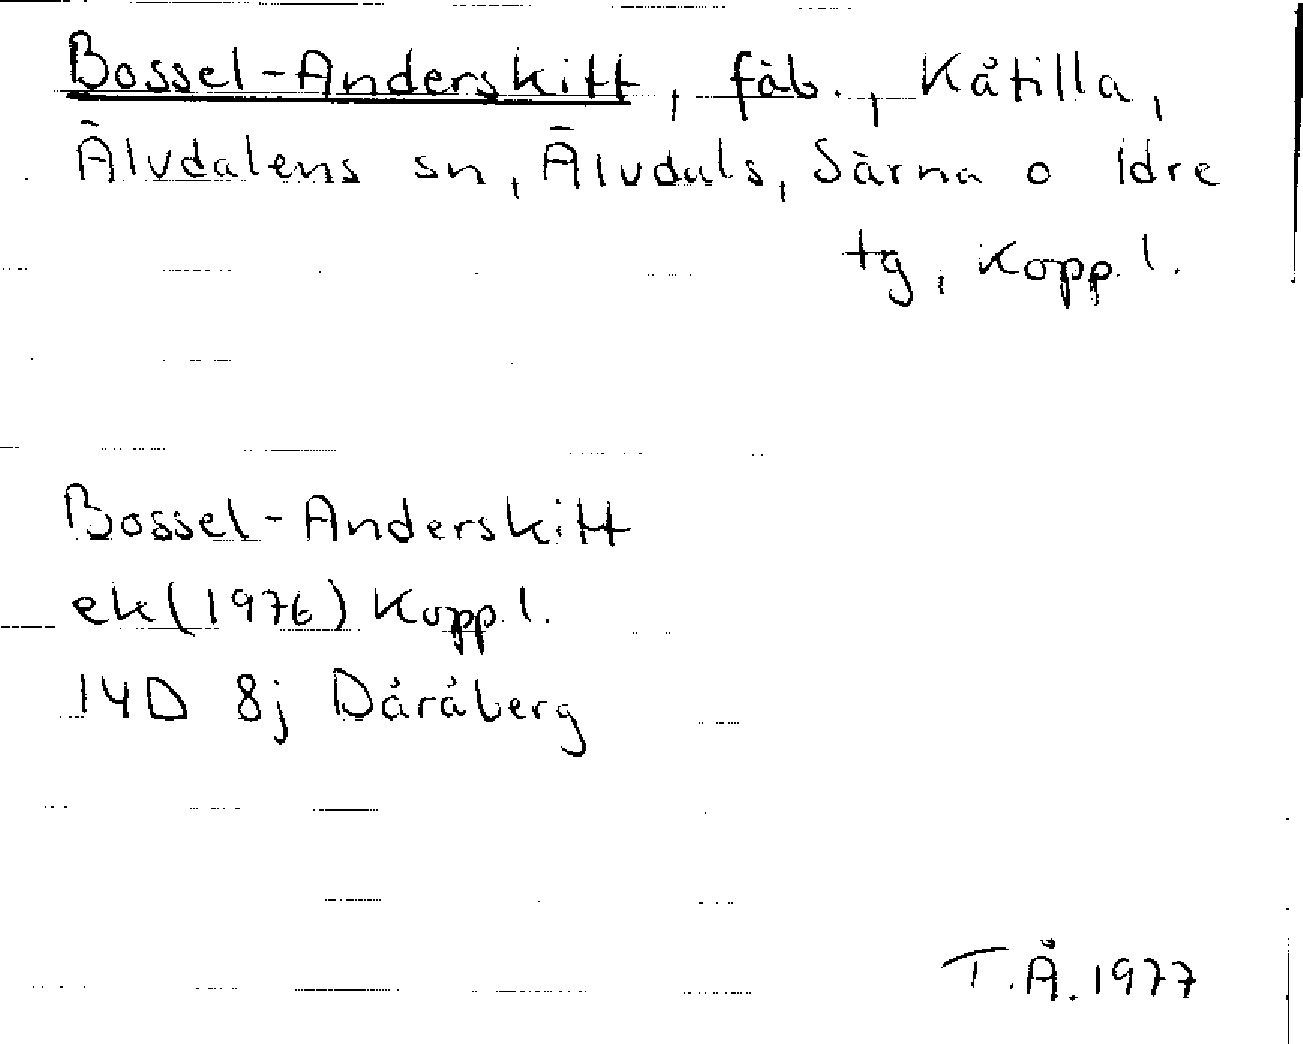 Bossel-Anderskitt, fäb., Kåtilla,
Älvdalens sn, Älvdals, Särna o Idre
tg, Kopp. l.
Bossel-Anderskitt
ek (1976) Kopp. l.
14D 8j Dåråberg
T.Å. 1977